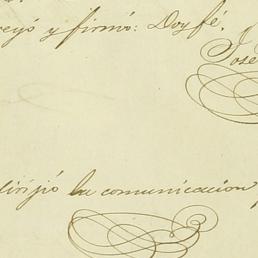 veyó y firmó: Doy fé.
Jose
dirijió la comunicacion